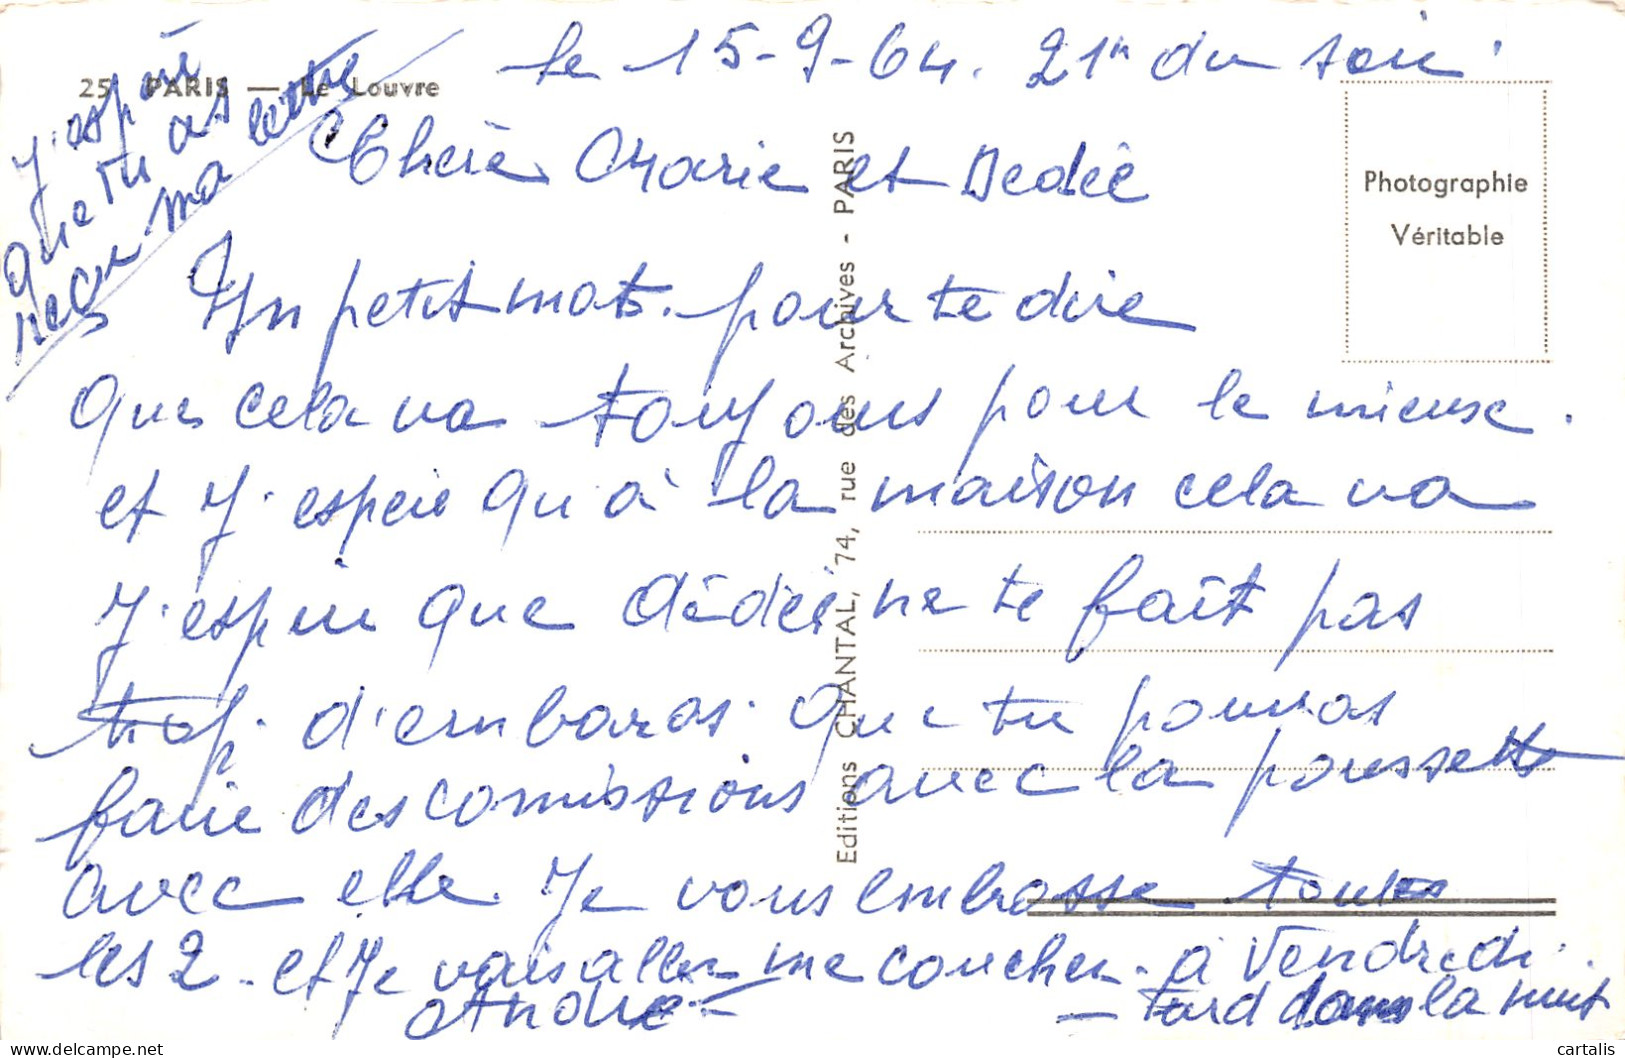 25 PARIS — Le Louvre
le 15-9-64. 21h du soir.
J'espère
que tu as
reçu ma lettre
Chère Marie et Dédée
Un petit mots. pour te dire
que cela va toujours pour le mieux.
et j'espere qu'à la maison cela va
J'espère que dédée ne te fait pas
trop d'embaras. que tu pourras
faire des comissions avec la poussette
avec elle. Je vous embrasse toutes
les 2 - et je vais aller me coucher. à Vendredi.
André — — tard dans la nuit
Photographie
Véritable
Editions CHANTAL, 74, rue des Archives - PARIS
cartalis